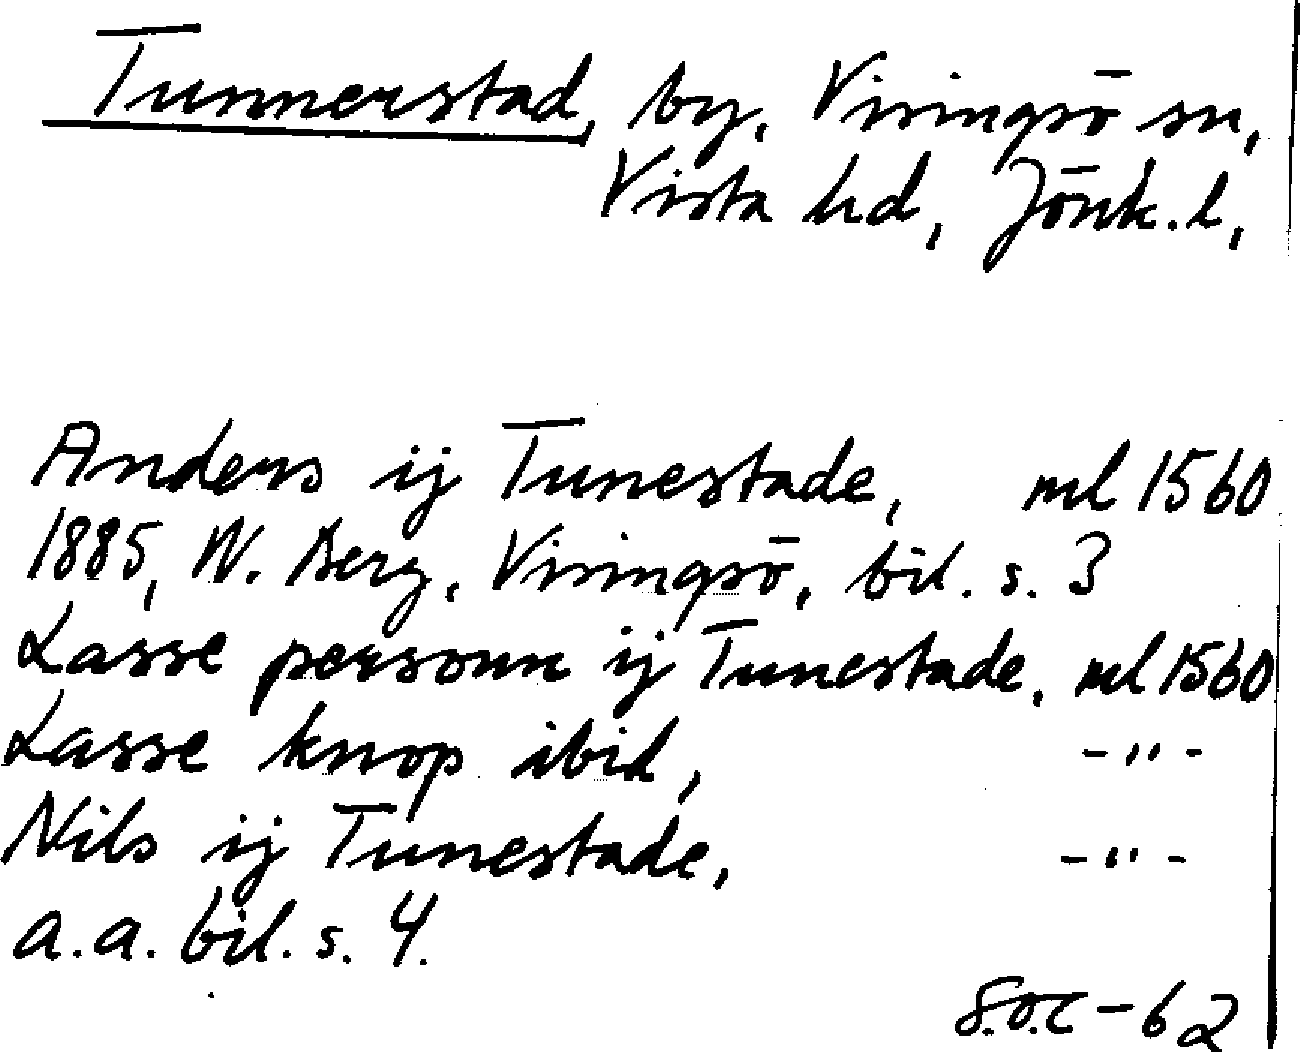 Tunnerstad, by, Visingsö sn,
Vista hd, Jönk. l,
Anders ij Tunestade, ml 1560
1885, W. Berg, Visingsö, bil. s. 3
Lasse personn ij Tunestade, ml 1560
Lasse knop ibid, -"-
Nils ij Tunestade, -"-
a.a. bil. s. 4.
S.O.C-62